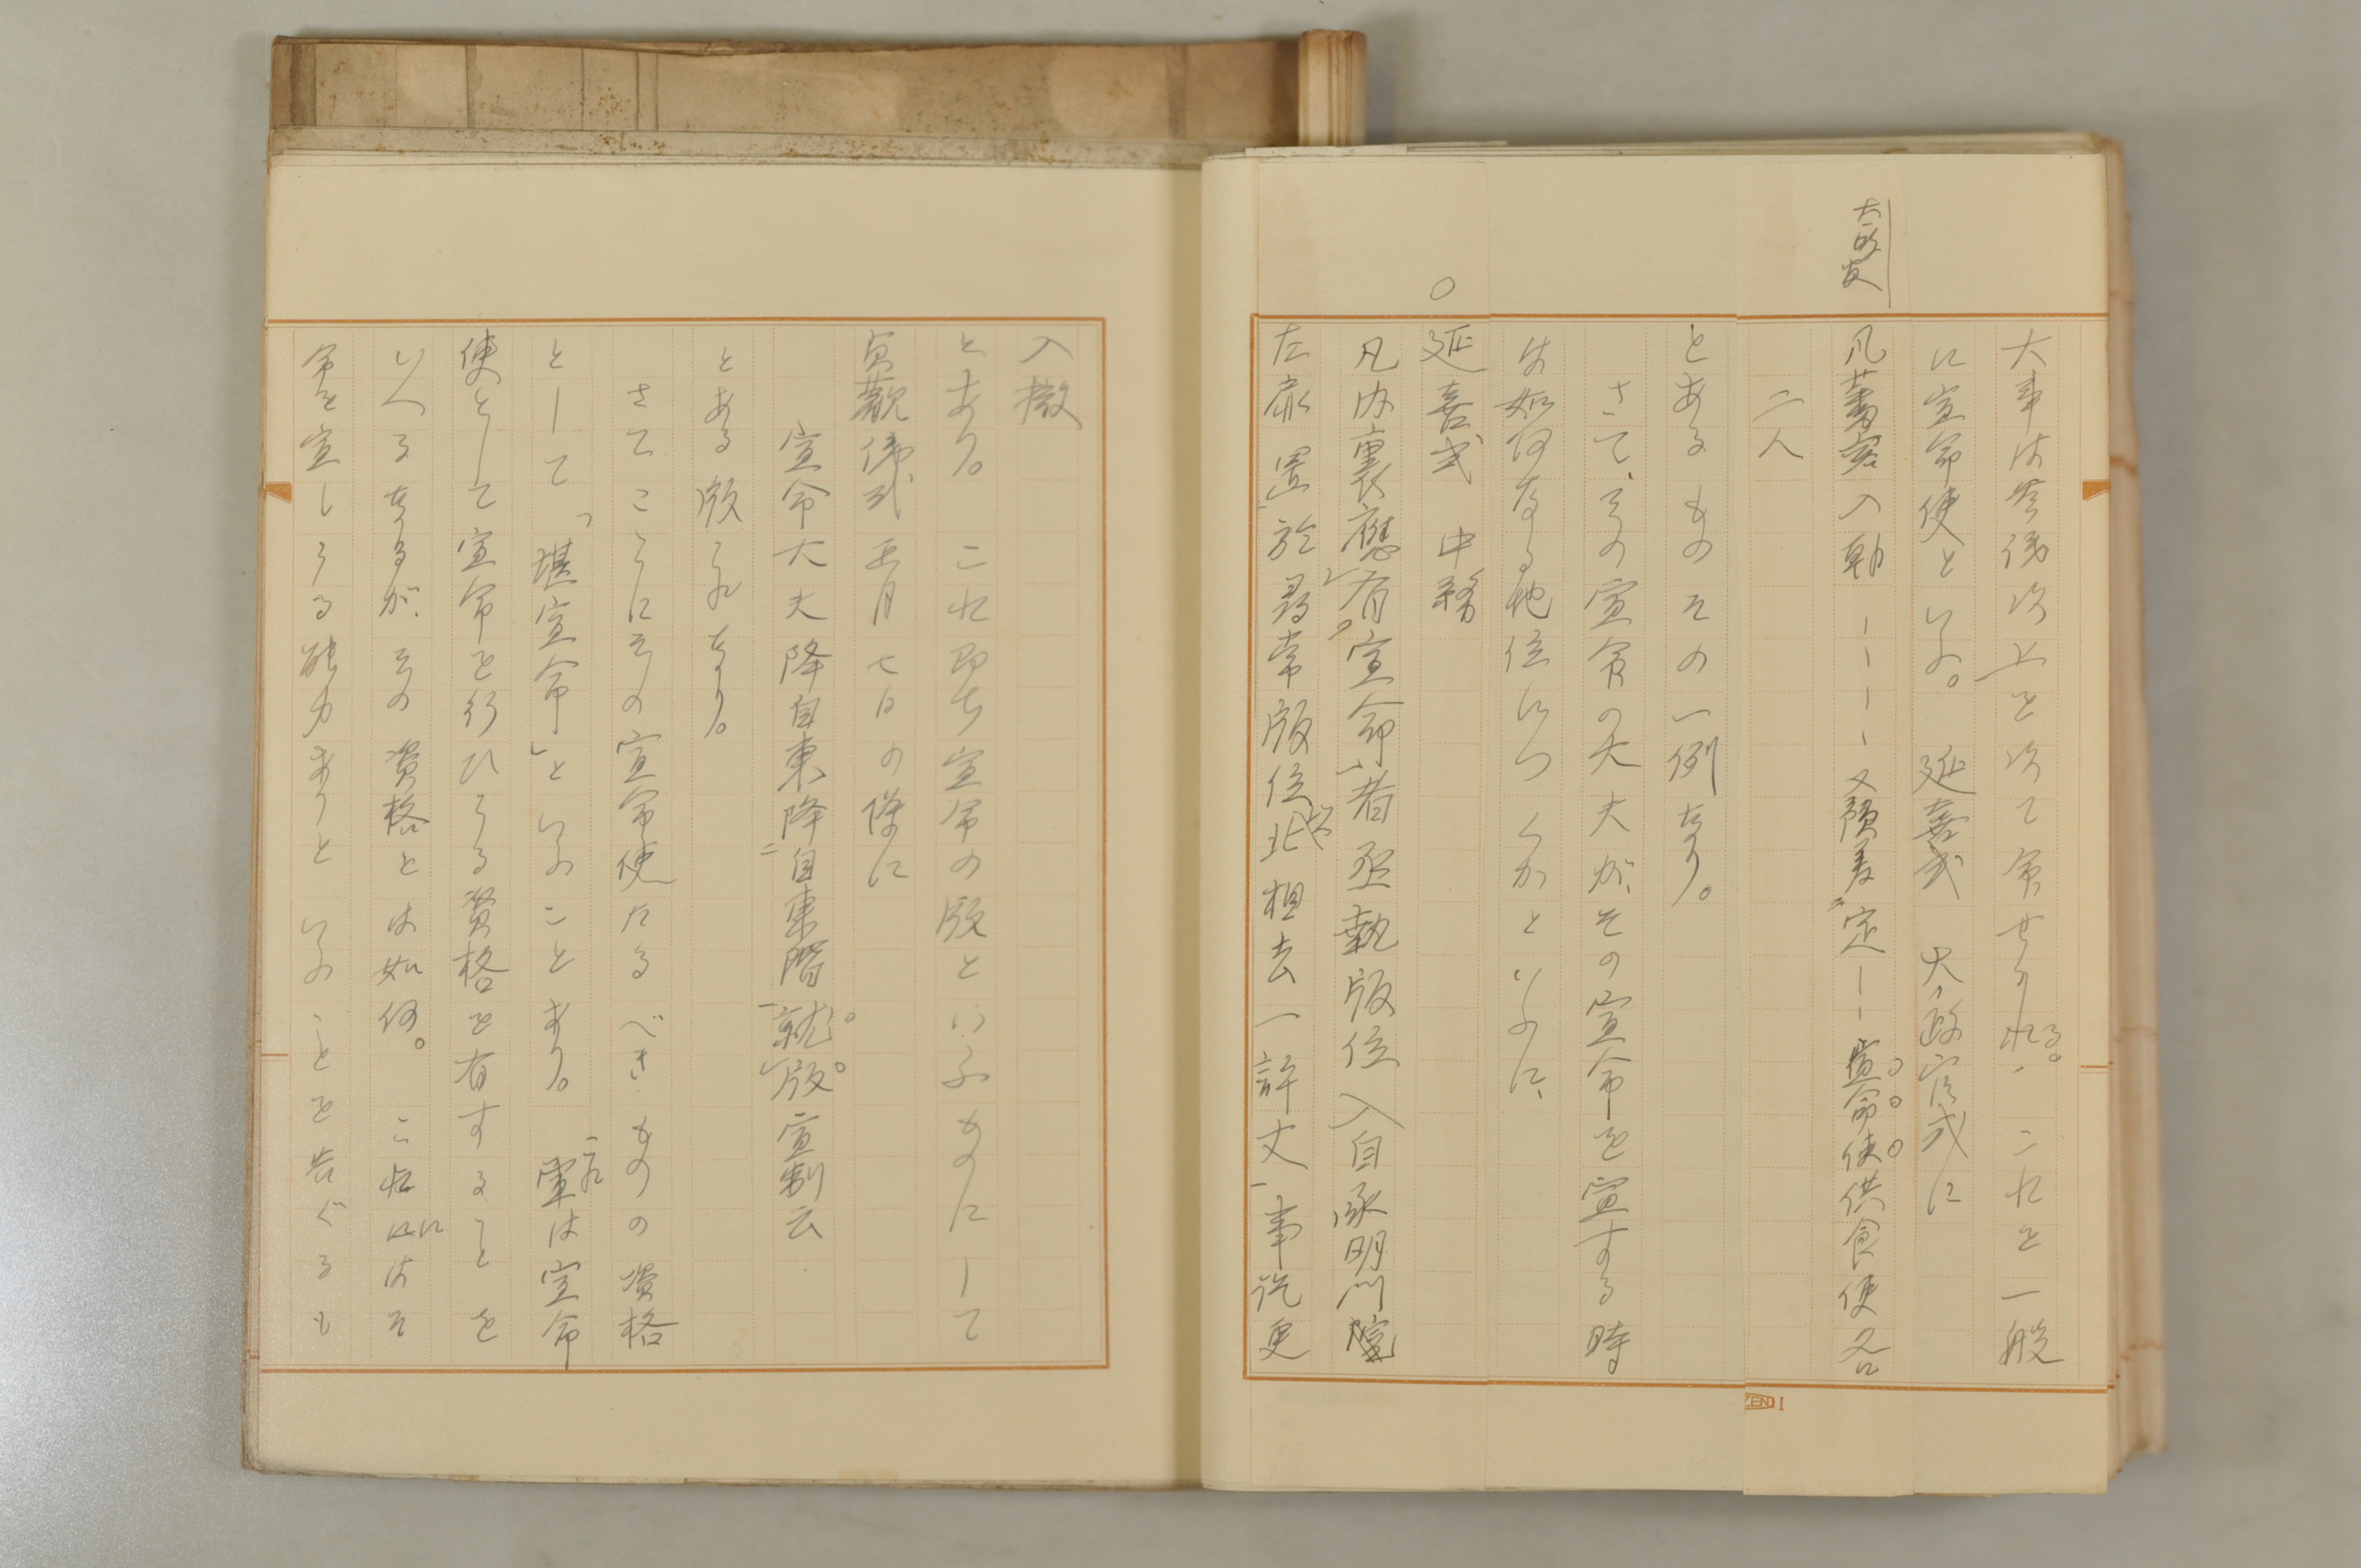 大事は参議以上を以て命せられる。これを一般
に宣命使といふ。延喜式 大政官式に
凡蕃客入朝ーーー、又預差定ーー宣命使供食使各
二人
とあるものその一例なり。
さて、その宣命の大夫が、その宣命を宣する時
は如何なる地位につくかといふに、
○
延喜式 中務
凡内裏應レ有ク宣命一者丞執版位入自承明門
左掖置於尋常版位北相去一許丈一事訖更
入撤
とあり。これ即ち宣命の版といふものにして
貞觀儀式正月七日の條に
宣命大夫降自東降二自東階一就レ版宣制云
とある版これなり。
さてここにその宣命使たるべきものの資格
として、「堪宣命」といふことあり。これは宣命
使として宣命を行ひうる資格を有することを
いへるなるが、その資格とは如何。これにはそ
命を宣しうる能力ありといふことを告ぐるも